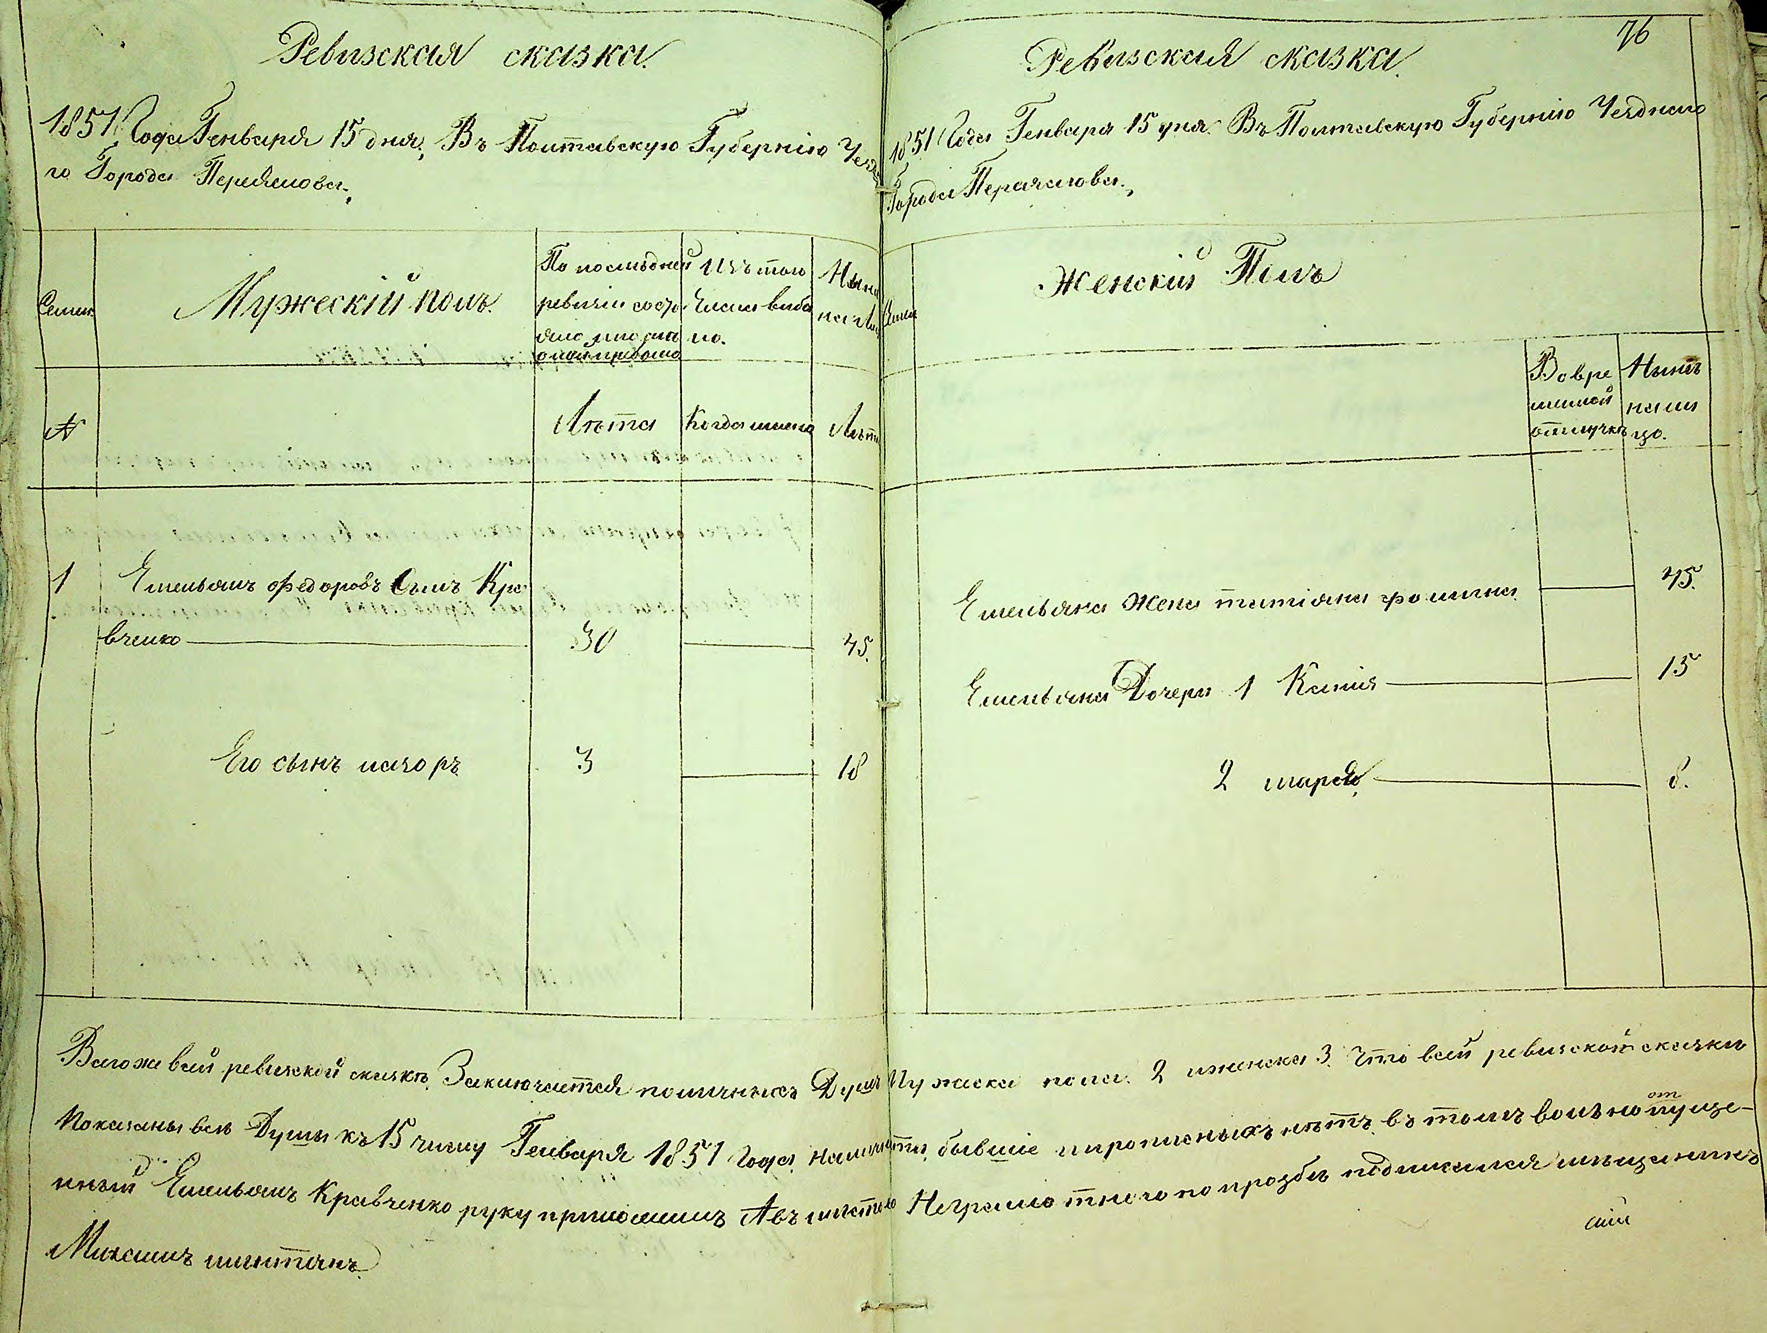 Ревизская сказка.
1851 Года Генваря 15 дня, Въ Полтавскую Губернію Уездна
го Города Переяслова.
Семьи
Мужескій полъ.
По последней
ревизіи состо
яло
Изъ того
числа выбы
ло.
Ныне
на ли
№
Лѣта
Когда имено
Лѣта
1 Емельянъ Федоровъ Сынъ Кра
вченко 30 45.
Его сынъ 3 18
76
Ревизская сказка.
1851 Года Генваря 15 дня. Въ Полтавскую Губернію Уезднаго
Города Пераяслова.
Семьи
Женскій Полъ
Во вре
менной
отлучкѣ
Нынѣ
на ли
цо.
Емельяна Жена татіяна фомина 45.
Емельяна Дочери 1 Ксенія 15
2 марѳа 8.
Вагоже всей ревизской сказкѣ, Заключается наличныхъ Душъ Мужеска пола. 2 иженска 3. Что всей ревизской сказки
Показаны всѣ Души къ 15 числу Генваря 1851 Года налицѣ бывшіе ипрописныхъ нѣтъ въ томъ вольно отпуще-
нный Емельянъ Кравченко руку приложилъ Авъместо Неграмотнаго по прозбѣ подписался мѣщанинъ
Максимъ